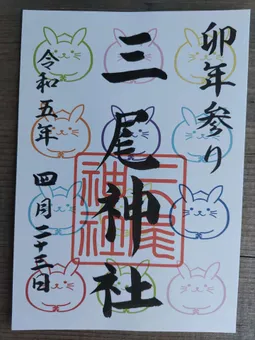 卯年参り
三尾神社
令和五年
四月二十三日
三尾
神社